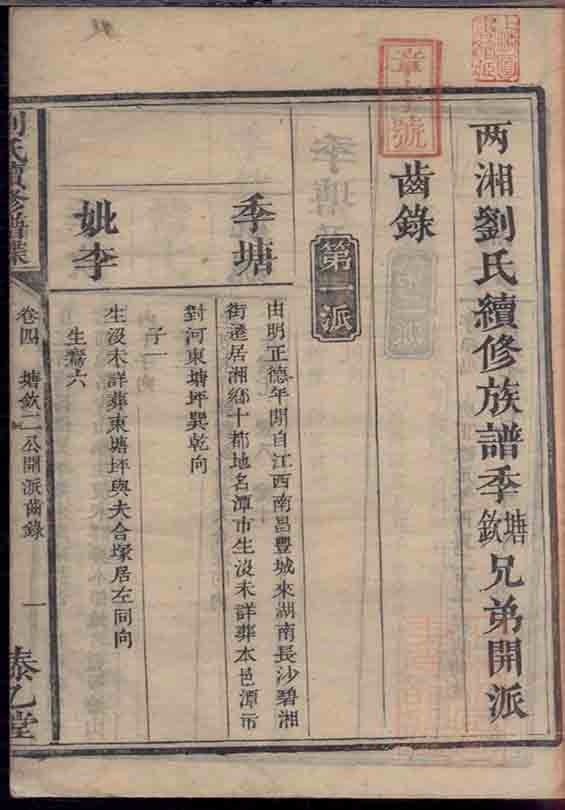 两湘劉氏續修族譜季塘欽兄弟開派
齒錄
號
第一派
季塘
由明正德年間自江西南昌豐城來湖南長沙碧湘
街遷居湘鄉十都地名潭市生沒未詳葬本邑潭市
對河東塘坪巽乾向
子一
妣李
生沒未詳葬東塘坪與夫合塚居左同向
生騫六
劉氏續修譜牒
卷四 塘欽二公開派齒錄 一
泰乙堂